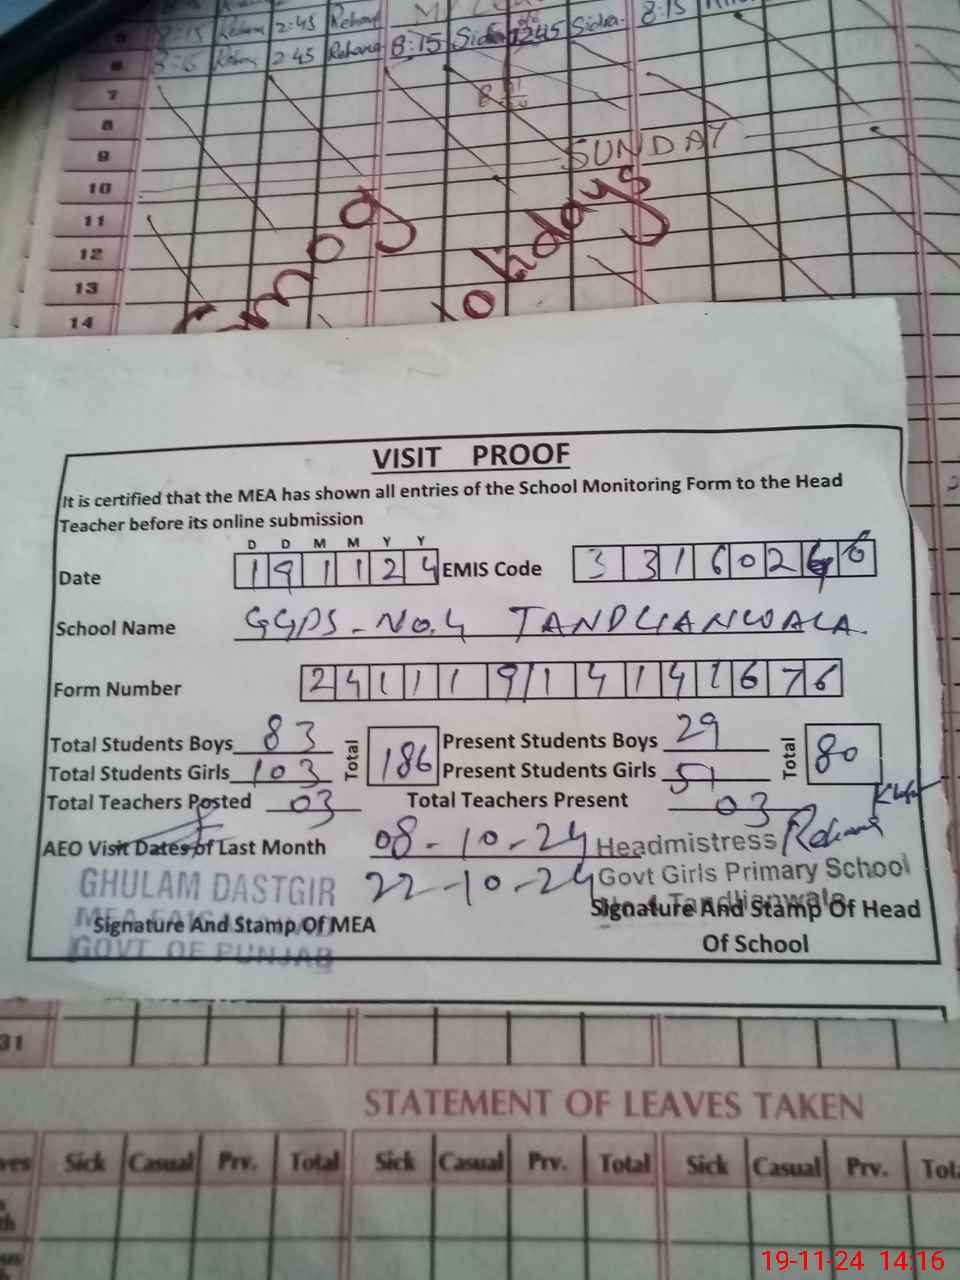 8:15 Rehana 2:45 Rehana
8:15 Rehana 2:45 Rehana 8:15 Sidra 1245 Sidra 8:15
6
7
8
9 SUNDAY
10
11
12
13
14
Smog Holidays
VISIT PROOF
It is certified that the MEA has shown all entries of the School Monitoring Form to the Head
Teacher before its online submission
D D M M Y Y
Date 191124 EMIS Code 33160266
School Name GGPS-No.4 TANDLIANWALA.
Form Number 24111914141676
Total Students Boys 83 Total 186 Present Students Boys 29 Total 80
Total Students Girls 103 Present Students Girls 51
Total Teachers Posted 03 Total Teachers Present 03
AEO Visit Dates of Last Month 08-10-24 Headmistress Rehana
GHULAM DASTGIR 22-10-24 Govt Girls Primary School
No.4 Tandlianwala
MEA
Signature And Stamp Of MEA Signature And Stamp Of Head
GOVT OF PUNJAB Of School
31
STATEMENT OF LEAVES TAKEN
Sick Casual Prv. Total Sick Casual Prv. Total Sick Casual Prv.
19-11-24 14:16